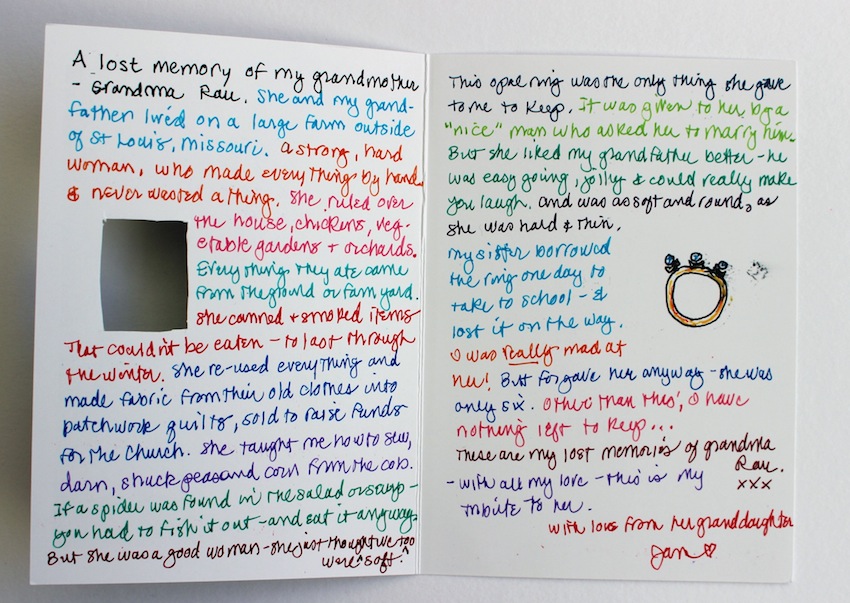 A lost memory of my grandmother
- Grandma Rau. She and my grand-
father lived on a large farm outside
of St Louis, Missouri. A strong, hard
woman, who made everything by hand
& never wasted a thing. She ruled over
the house, chickens, veg-
etable gardens + orchards.
Everything they ate came
from the ground or farm yard.
She canned + smoked items
that couldn't be eaten - to last through
the winter. She re-used everything and
made fabric from their old clothes into
patchwork quilts, sold to raise funds
for the church. She taught me how to sew,
darn, shuck peas and corn from the cob.
If a spider was found in the salad or soup -
you had to fish it out - and eat it anyway.
But she was a good woman - she just thought we
were too soft.
This opal ring was the only thing she gave
to me to keep. It was given to her by a
"nice" man who asked her to marry him.
But she liked my grandfather better - he
was easy going, jolly & could really make
you laugh. And was as soft and round, as
she was hard & thin.
My sister borrowed
the ring one day to
take to school - &
lost it on the way.
I was really mad at
her! But forgave her anyway - she was
only six. Other than this, I have
nothing left to keep...
These are my lost memories of grandma
Rau.
- with all my love - this is my
xxx
tribute to her.
with love from her granddaughter
Jan ♡